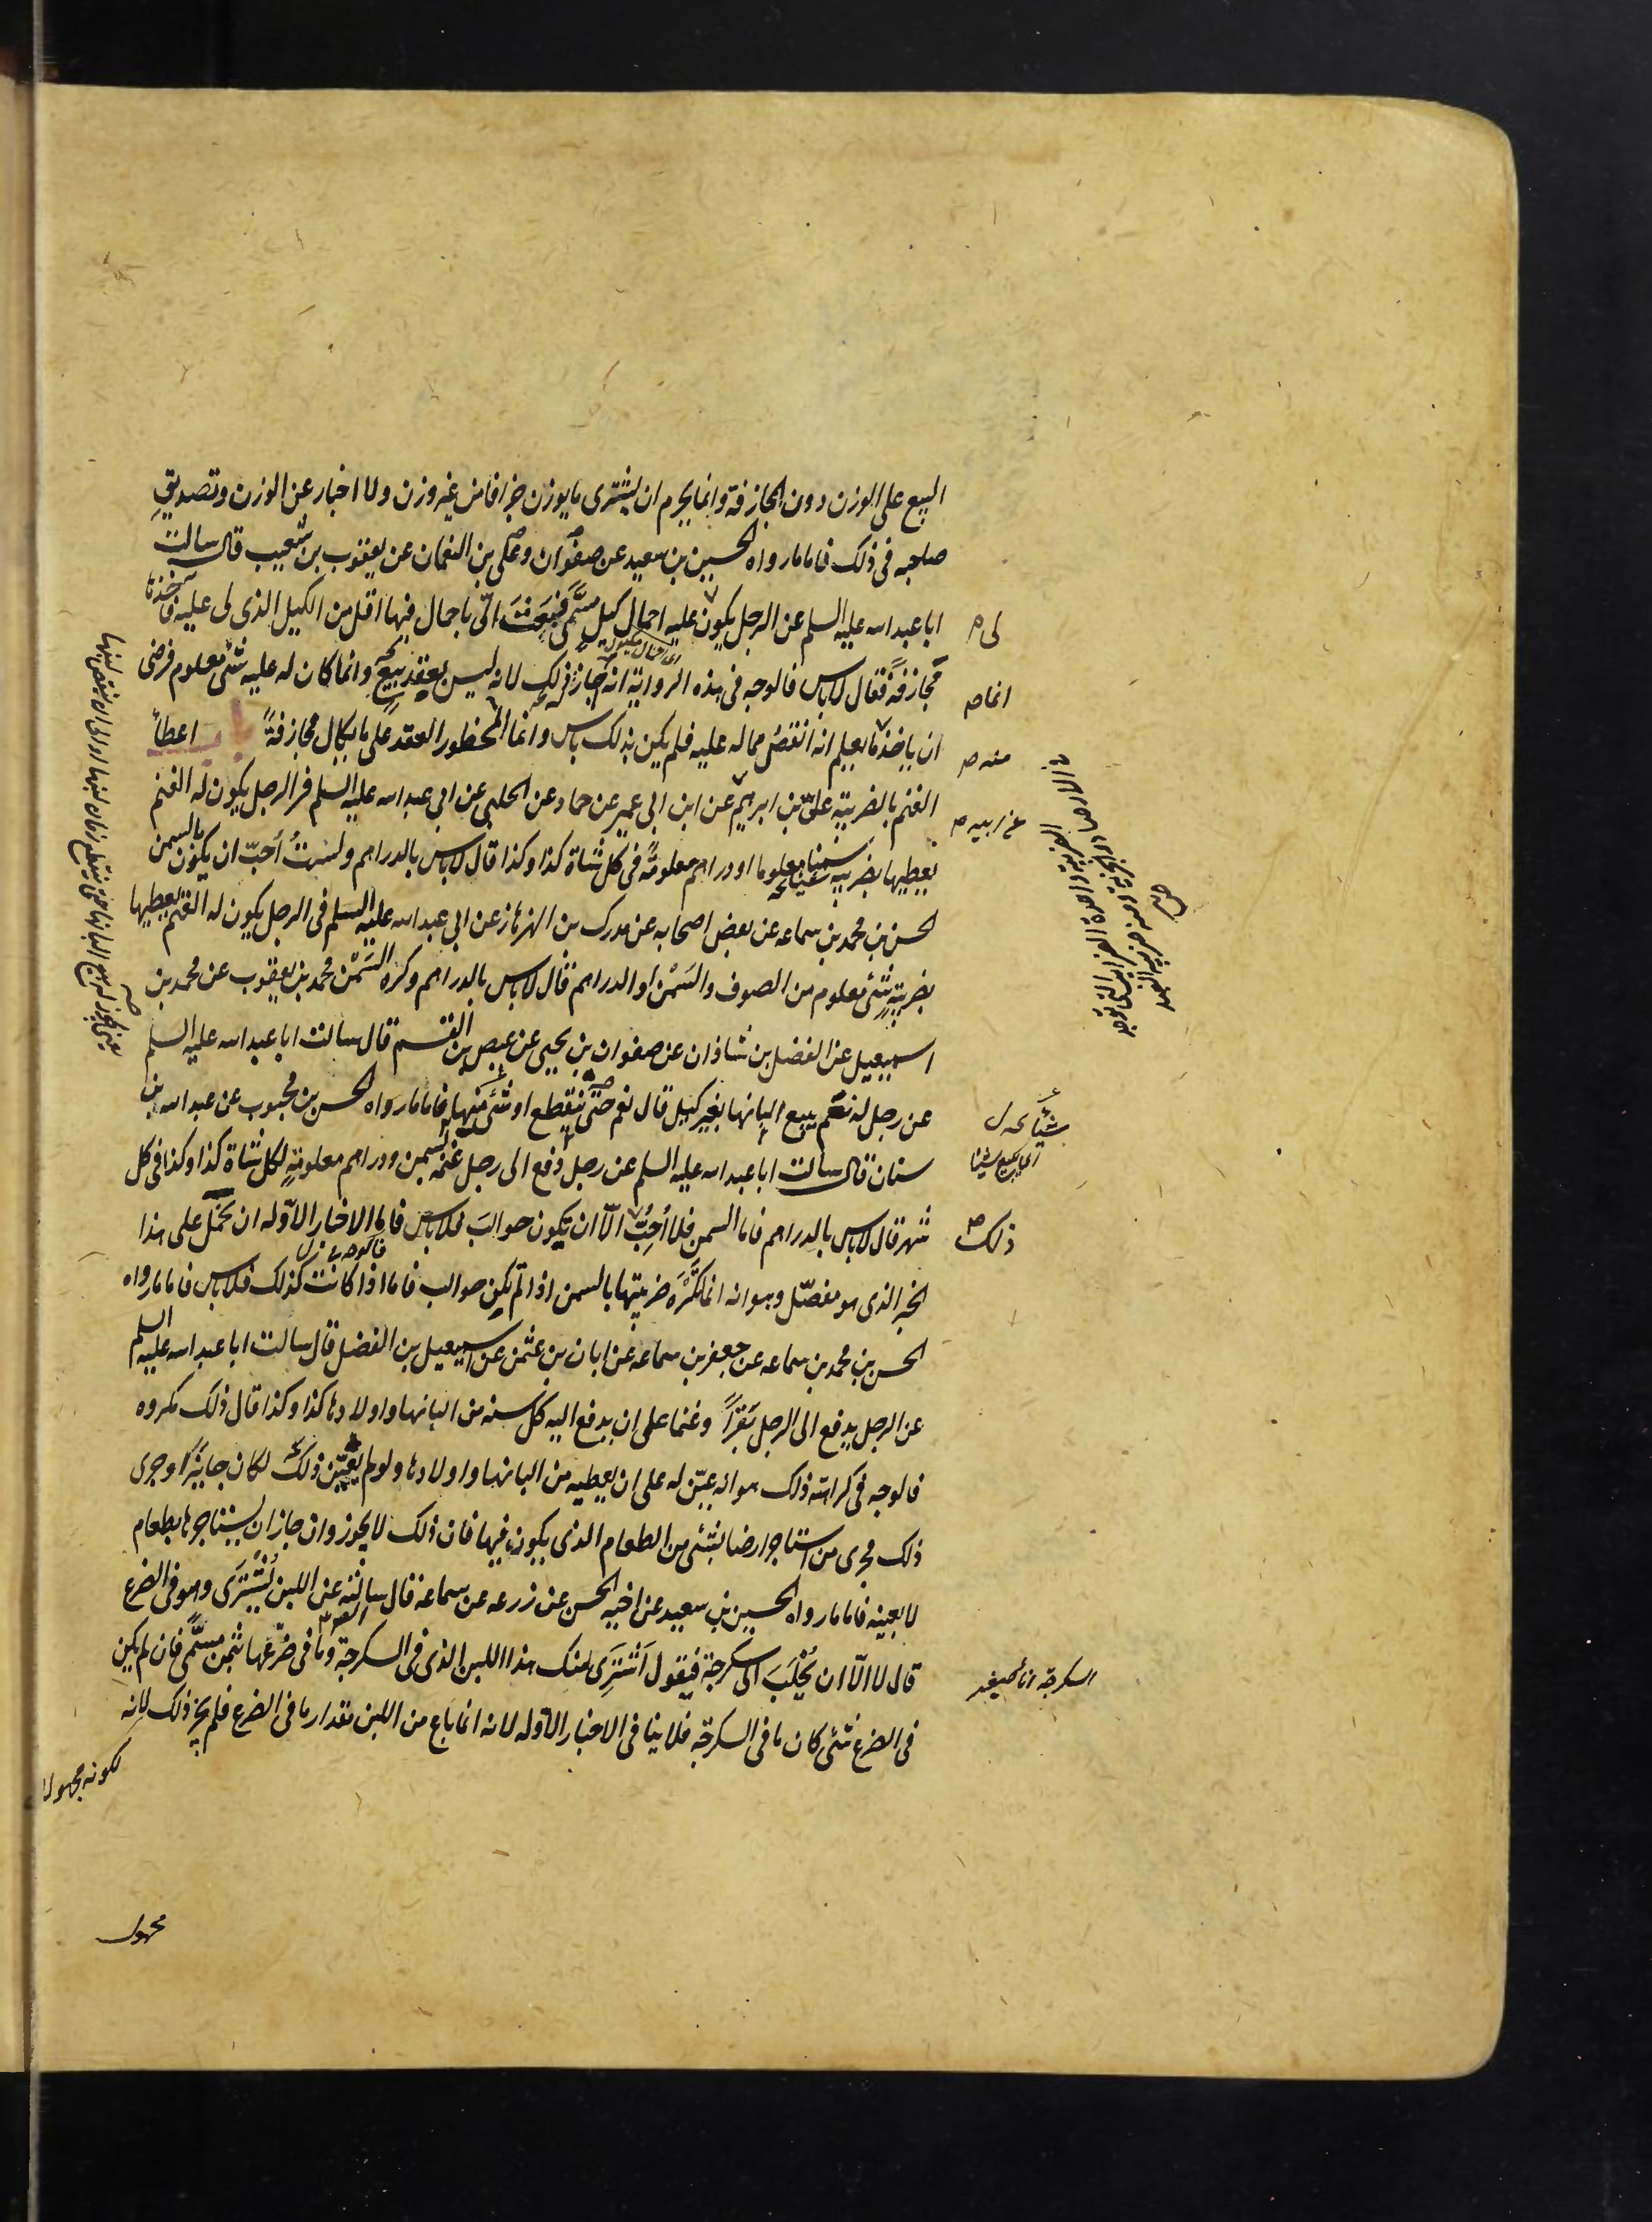 البيع على الوزن دون المجازفة وانما يحرم ان يشترى ما يوزن جزافا من غير وزن ولا اخبار عن الوزن وتصديق
صاحبه فى ذلك فاما ما رواه الحسين بن سعيد عن صفوان وعلى بن النعمان عن يعقوب بن شعيب قال سالت
ابا عبد الله عليه السلم عن الرجل يكون عليه احمال كيل مسمّى فبعث الىّ باحمال فيها اقل من الكيل الذى لى عليه فآخذها
مجازفةً فقال لاباس فالوجه فى هذه الرواية انه جاز ذلك لانه ليس بعقد بيع وانما كان له عليه شئ معلوم فرضى
ان ياخذ ما يعلم انه انقص مما له عليه فلم يكن بذلك باس وانما المحظور العقد على ما يكال مجازفةً باب اعطاء
الغنم بالضريبة علىّ بن ابرهيم عن ابن ابى عمير عن حماد عن الحلبى عن ابى عبد الله عليه السلم فى الرجل يكون له الغنم
يعطيها بضريبة سمنا معلوما او دراهم معلومةً فى كل شاة كذا وكذا قال لاباس بالدراهم ولستُ اُحبّ ان يكون بالسمن
الحسن بن محمد بن سماعه عن بعض اصحابه عن مدرك بن الهزهاز عن ابى عبد الله عليه السلم فى الرجل يكون له الغنم يعطيها
بضريبةٍ شئ معلوم من الصوف والسَمْن او الدراهم قال لاباس بالدراهم وكره السَمْن محمد بن يعقوب عن محمد بن
اسمعيل عن الفضل بن شاذان عن صفوان بن يحيى عن عيص بن القسم قال سالت ابا عبد الله عليه السلم
عن رجل له نعم يبيع البانها بغير كيل قال نعم حتى ينقطع او شئ منها فاما ما رواه الحسن بن محبوب عن عبد الله بن
سنان قال سالت ابا عبد الله عليه السلم عن رجل دفع الى رجل غنمه بسمن ودراهم معلومةٍ لكل شاة كذا وكذا فى كل
شهر قال لاباس بالدراهم فاما السمن فلا اُحِبُّ الّا ان يكون حوالبَ فلاباس فاما الاخبار الاوّله ان تحمل على هذا
الخبر الذى هو مفصّل وهو انه انما تكره ضريبتها بالسمن اذا لم تكن حوالب فاما اذا كانت كذلك فلاباس فاما ما رواه
الحسن بن محمد بن سماعه عن جعفر بن سماعه عن ابان بن عثمن عن اسمعيل بن الفضل قال سالت ابا عبد الله عليه السلم
عن الرجل يدفع الى الرجل بَقَراً وغنما على ان يدفع اليه كل سنه من البانها واولادها كذا وكذا قال ذلك مكروه
فالوجه فى كراهته ذلك هو انه عيّن له على ان يعطيه من البانها واولادها ولو لم يعيّن ذلك لكان جايزا وجرى
ذلك مجرى من استاجر ارضا بشئ من الطعام الذى يكون فيها فان ذلك لا يجوز وان جاز ان يستاجرها بطعام
لا بعينه فاما ما رواه الحسين بن سعيد عن اخيه الحسن عن زرعه عن سماعة قال سالته عن اللبن يُشترى وهو فى الضرع
قال لا الّا ان يُحْلَبَ الى سكرجة فيقول اَشترِى منك هذا اللبن الذى فى السكرجة وما فى ضرعها بثمن مسمّى فان لم يكن
فى الضرع شئ كان ما فى السكرجة فلا ينافى الاخبار الاوله لانه انما باع من اللبن مقدار ما فى الضرع فلم يجز ذلك لانه
لكونه مجهولا
مجهول
لى م
انما ص
منه ص
عن ابيه ص
ذلك ص
السكرجة اناء صغير